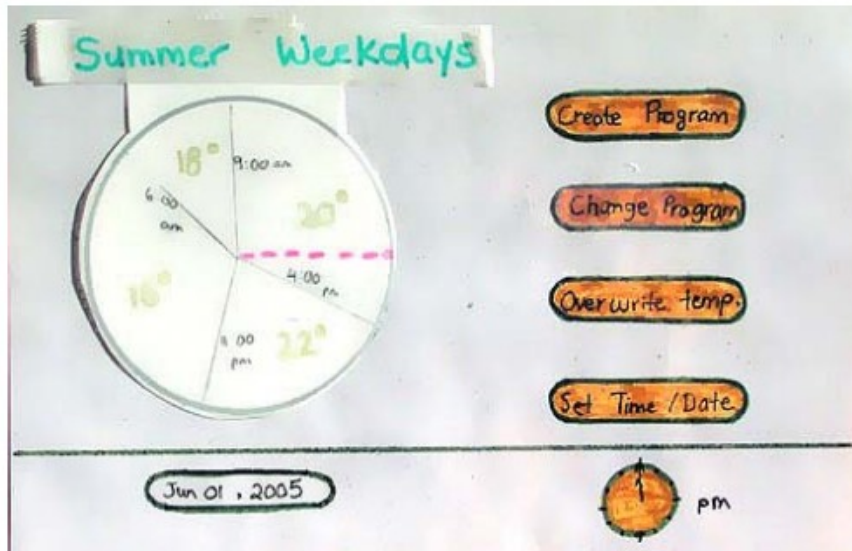 Summer Weekdays
18°
9:00 am
20°
6:00
am
16°
4:00
pm
22°
:00
pm
Create Program
Change Program
Overwrite temp.
Set Time/Date
Jun 01, 2005
pm